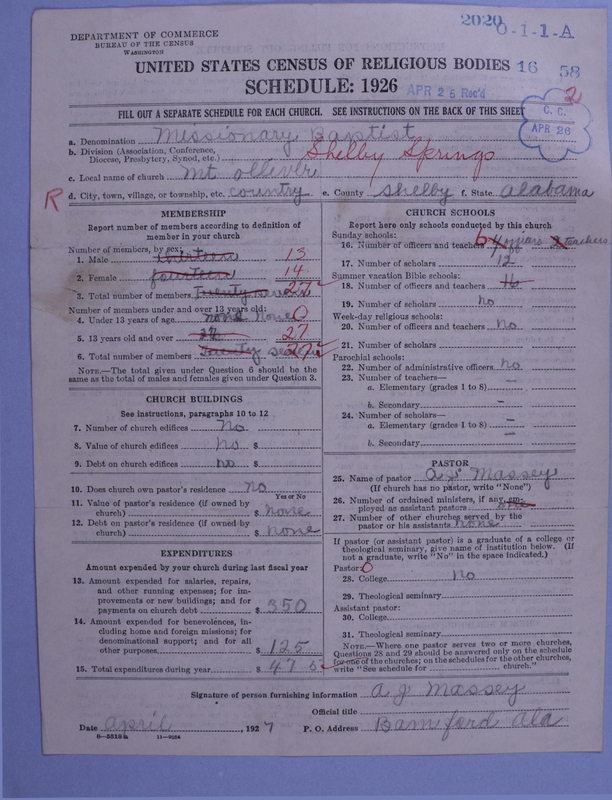 2020
0-1-1-A
DEPARTMENT OF COMMERCE
BUREAU OF THE CENSUS
WASHINGTON
UNITED STATES CENSUS OF RELIGIOUS BODIES 16 58
SCHEDULE: 1926 APR 26 Rec'd
2
FILL OUT A SEPARATE SCHEDULE FOR EACH CHURCH. SEE INSTRUCTIONS ON THE BACK OF THIS SHEET
C. C.
APR 26
a. Denomination Missionary Baptist
b. Division (Association, Conference, Diocese, Presbytery, Synod, etc.) Shelby Springs
c. Local name of church Mt olliver
R d. City, town, village, or township, etc. country e. County Shelby f. State alabama
MEMBERSHIP
Report number of members according to definition of
member in your church
Number of members, by sex:
1. Male thirteen 13
2. Female fourteen 14
3. Total number of members Twenty 27
Number of members under and over 13 years old:
4. Under 13 years of age none none 0
5. 13 years old and over 27
6. Total number of members Twenty seven 27
NOTE.—The total given under Question 6 should be the
same as the total of males and females given under Question 3.
CHURCH BUILDINGS
See instructions, paragraphs 10 to 12
7. Number of church edifices no
8. Value of church edifices no $
9. Debt on church edifices no $
10. Does church own pastor's residence no
Yes or No
11. Value of pastor's residence (if owned by
church) $ none
12. Debt on pastor's residence (if owned by
church) $ none
EXPENDITURES
Amount expended by your church during last fiscal year
13. Amount expended for salaries, repairs,
and other running expenses; for im-
provements or new buildings; and for
payments on church debt $ 350
14. Amount expended for benevolences, in-
cluding home and foreign missions; for
denominational support; and for all
other purposes $ 125
15. Total expenditures during year $ 475
CHURCH SCHOOLS
Report here only schools conducted by this church
Sunday schools:
16. Number of officers and teachers 6 4 2 teachers
17. Number of scholars 12
Summer vacation Bible schools:
18. Number of officers and teachers 16
19. Number of scholars no
Week-day religious schools:
20. Number of officers and teachers no
21. Number of scholars
Parochial schools:
22. Number of administrative officers no
23. Number of teachers—
a. Elementary (grades 1 to 8) —
b. Secondary —
24. Number of scholars—
a. Elementary (grades 1 to 8) —
b. Secondary —
PASTOR
25. Name of pastor a J Massey
(If church has no pastor, write "None")
26. Number of ordained ministers, if any, em-
ployed as assistant pastors
27. Number of other churches served by the
pastor or his assistants none
If pastor (or assistant pastor) is a graduate of a college or
theological seminary, give name of institution below. (If
not a graduate, write "No" in the space indicated.)
Pastor: 0
28. College no
29. Theological seminary
Assistant pastor:
30. College
31. Theological seminary
NOTE.—Where one pastor serves two or more churches,
Questions 28 and 29 should be answered only on the schedule
for one of the churches; on the schedules for the other churches,
write "See schedule for church."
Signature of person furnishing information a J Massey
Official title
Date april, 1927 P. O. Address Bamford Ala
8—5518a 11—9554